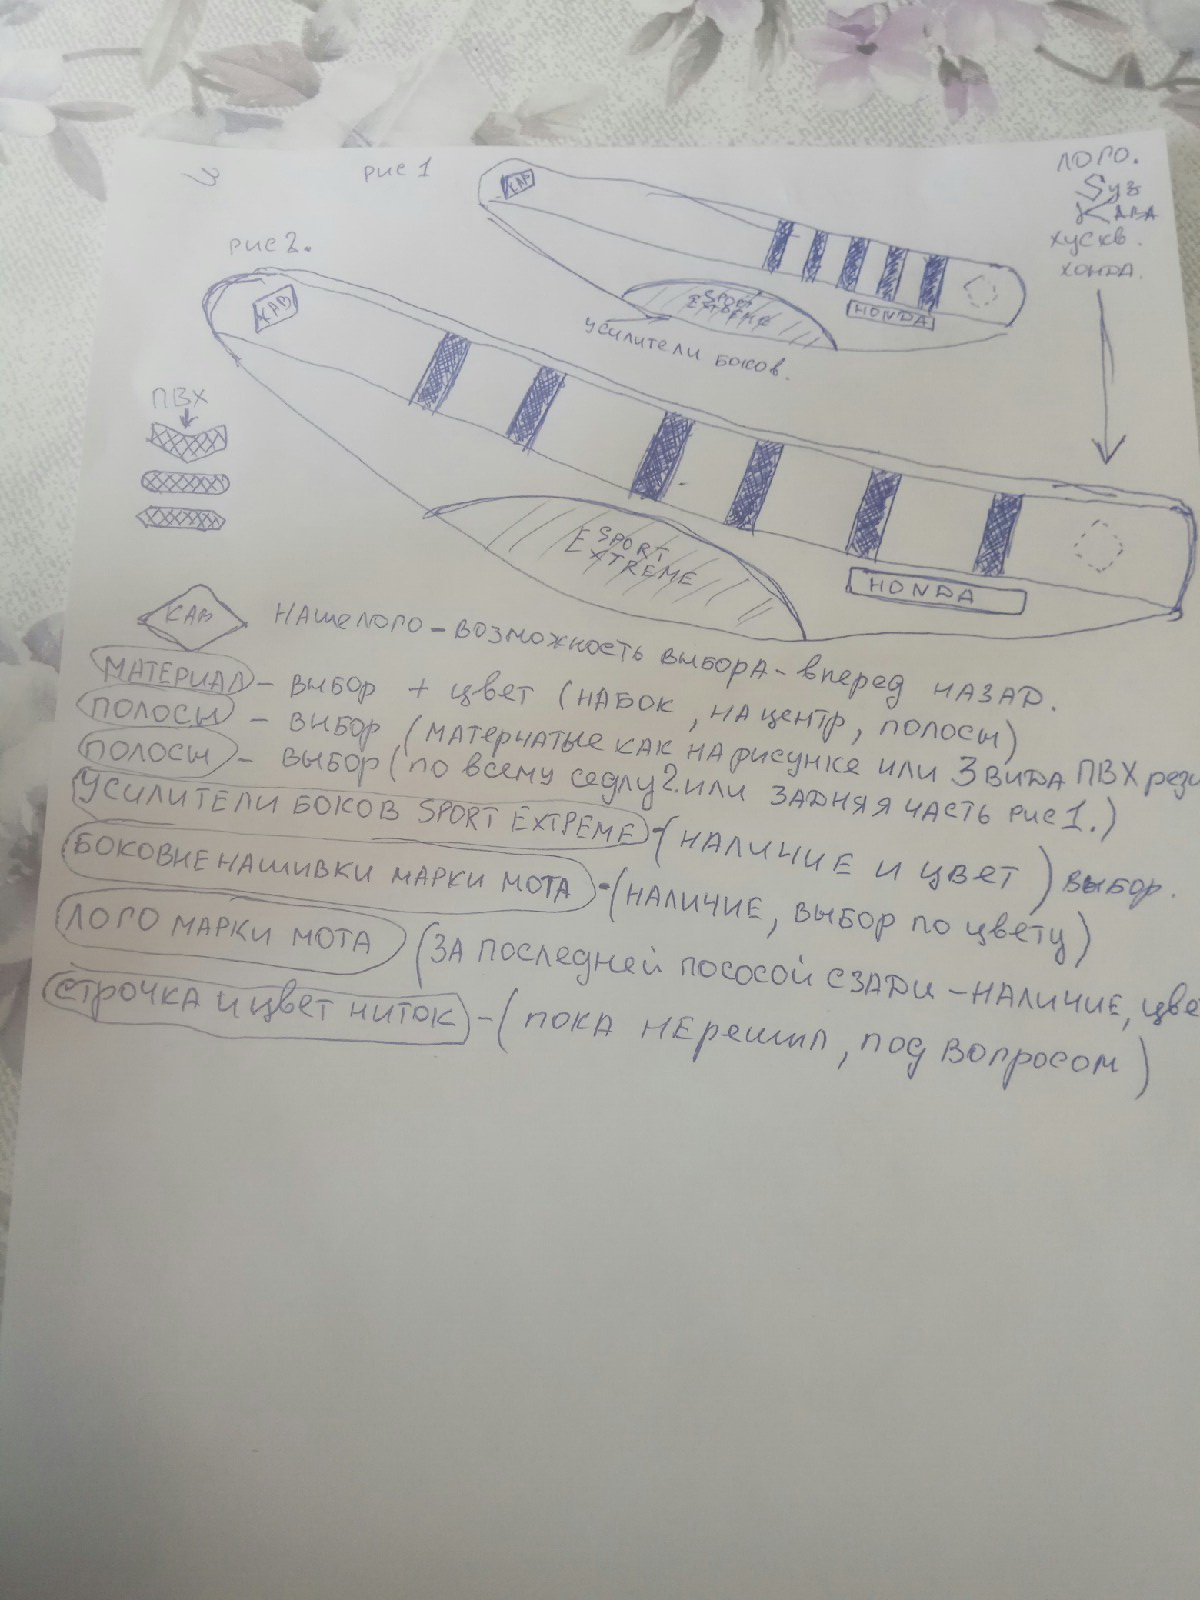 рис 1
КАР
ЛОГО.
Suz
КАВА
хускв.
ХОНДА.
SPORT
EXTREME
HONDA
усилители боков.
рис 2.
КАР
ПВХ
SPORT
EXTREME
HONDA
КАР НАШЕ ЛОГО - ВОЗМОЖНОСТЬ ВЫБОРА - вперед НАЗАД.
МАТЕРИАЛ - выбор + цвет (НАБОК, НА центр, полосы)
ПОЛОСЫ - ВЫБОР (МАТЕРЧАТЫЕ КАК НА рисунке или 3 ВИДА ПВХ рези
ПОЛОСЫ - ВЫБОР (по всему седлу 2. или ЗАДНЯЯ ЧАСТЬ рис 1.)
УСИЛИТЕЛИ БОКОВ SPORT EXTREME - (НАЛИЧИЕ И ЦВЕТ) выбор.
БОКОВЫЕ НАШИВКИ МАРКИ МОТА - (НАЛИЧИЕ, ВЫБОР ПО цвету)
ЛОГО МАРКИ МОТА (ЗА ПОСЛЕДНЕЙ ПОСОСОЙ СЗАДИ - НАЛИЧИЕ, цве
СТРОЧКА И ЦВЕТ НИТОК - (ПОКА НЕ решил, под вопросом)